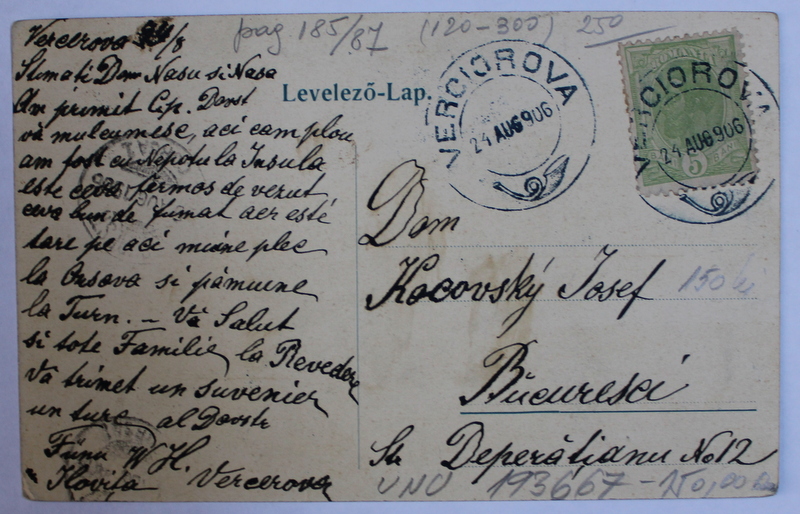 pag 185/87 (120-300) 250
Vercerova 24/8
Stimati Dom Nasu si Nasa
Am primit C.p. Dvost
vă mulcumesc, aci cam plou
am fost cu Nepotu la Insula
este ceva fermos de vezut
ceva bun de fumat aer este
tare pe aci mune plec
la Orsova si pămuine
la Turn. — Vă Salut
si tote Familie la Revedere
Vă trimet un suvenier
un turc al Dvostr
Funu W H.
Ilovita Vercerova
Levelező-Lap.
VERCIOROVA
24 AUG 906
VERCIOROVA
24 AUG 906
ROMANIA
5
BANI
Dom
Kocovský Josef
150 lei
Bucuresci
Str Deperătianu No 12
UNU 193667 - 150,00